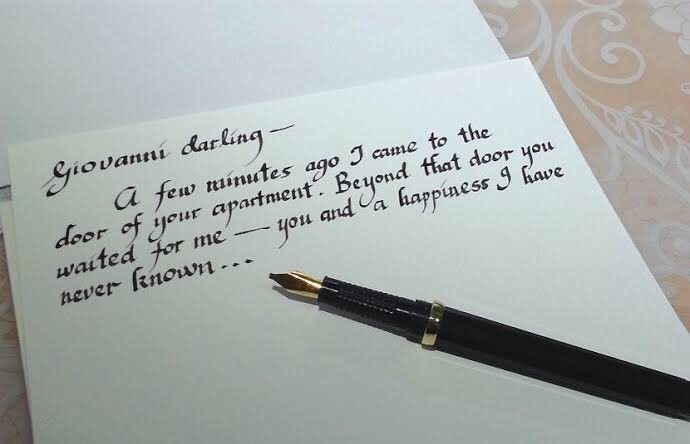 Giovanni darling—
A few minutes ago I came to the
door of your apartment. Beyond that door you
waited for me — you and a happiness I have
never known...